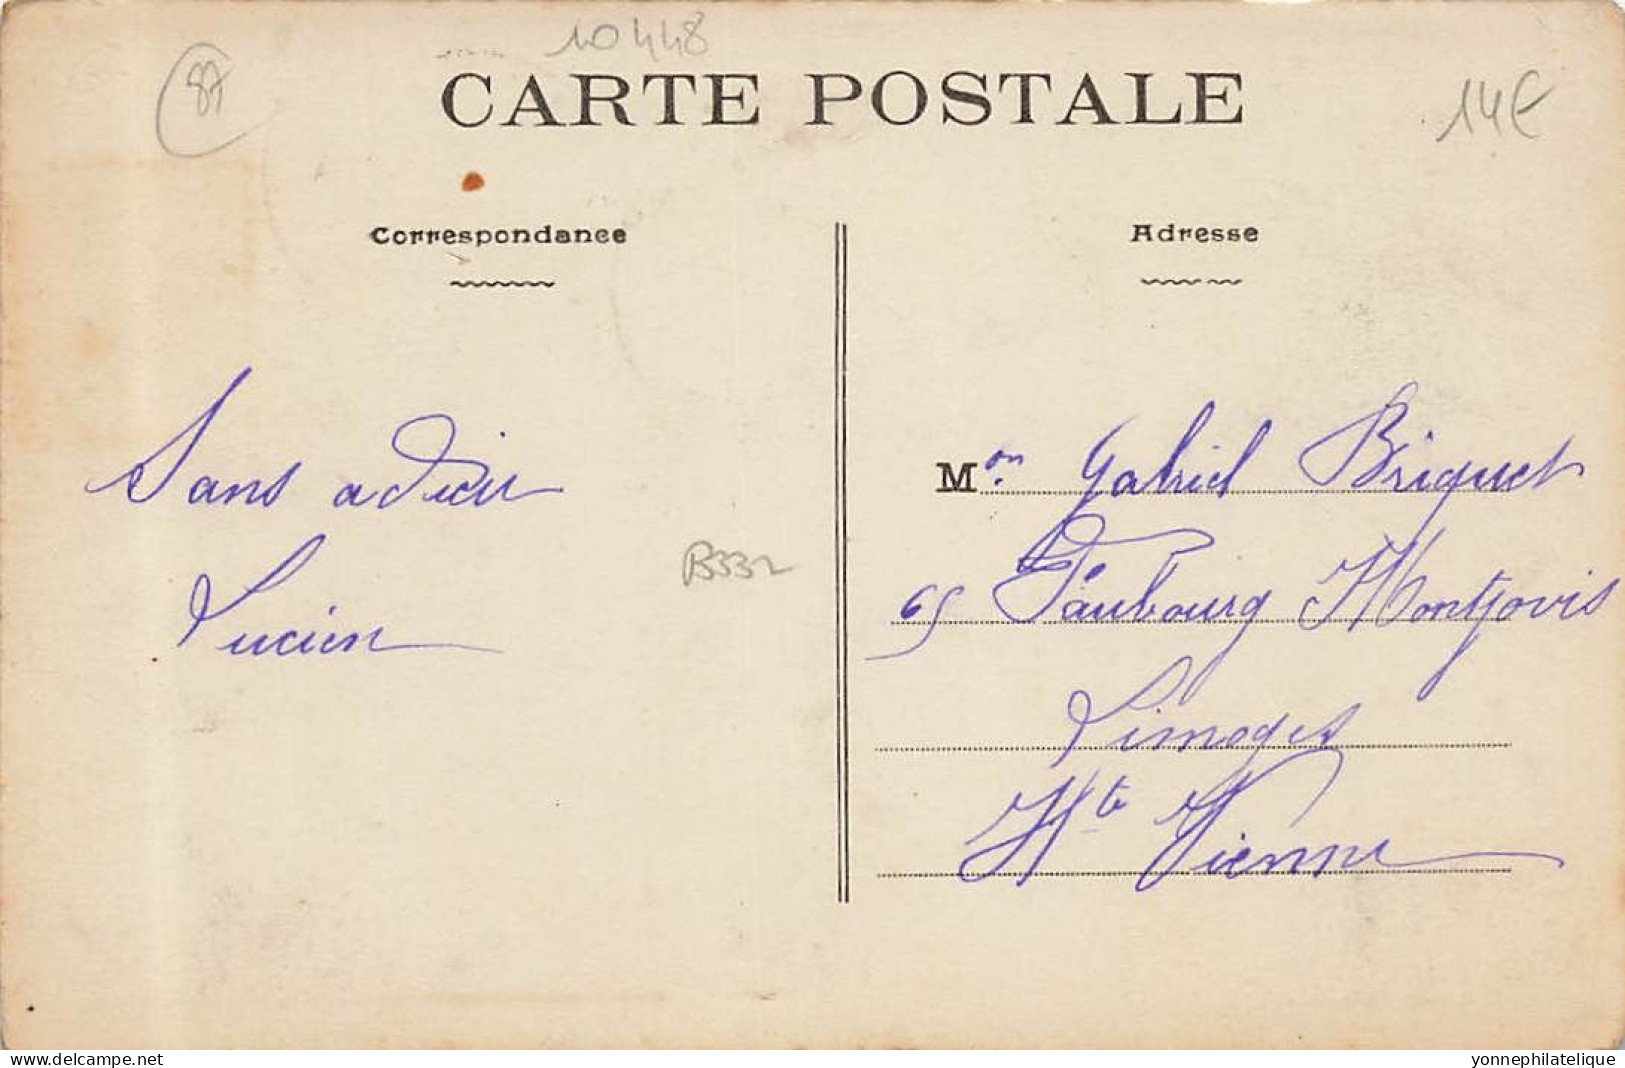 10448
87
CARTE POSTALE
14€
Correspondance
Adresse
Sans adieu
Lucien
B332
Mon. Gabriel Briquet
65 Faubourg Montjovis
Limoges
Hte Vienne
www.delcampe.net
yonnephilatelique